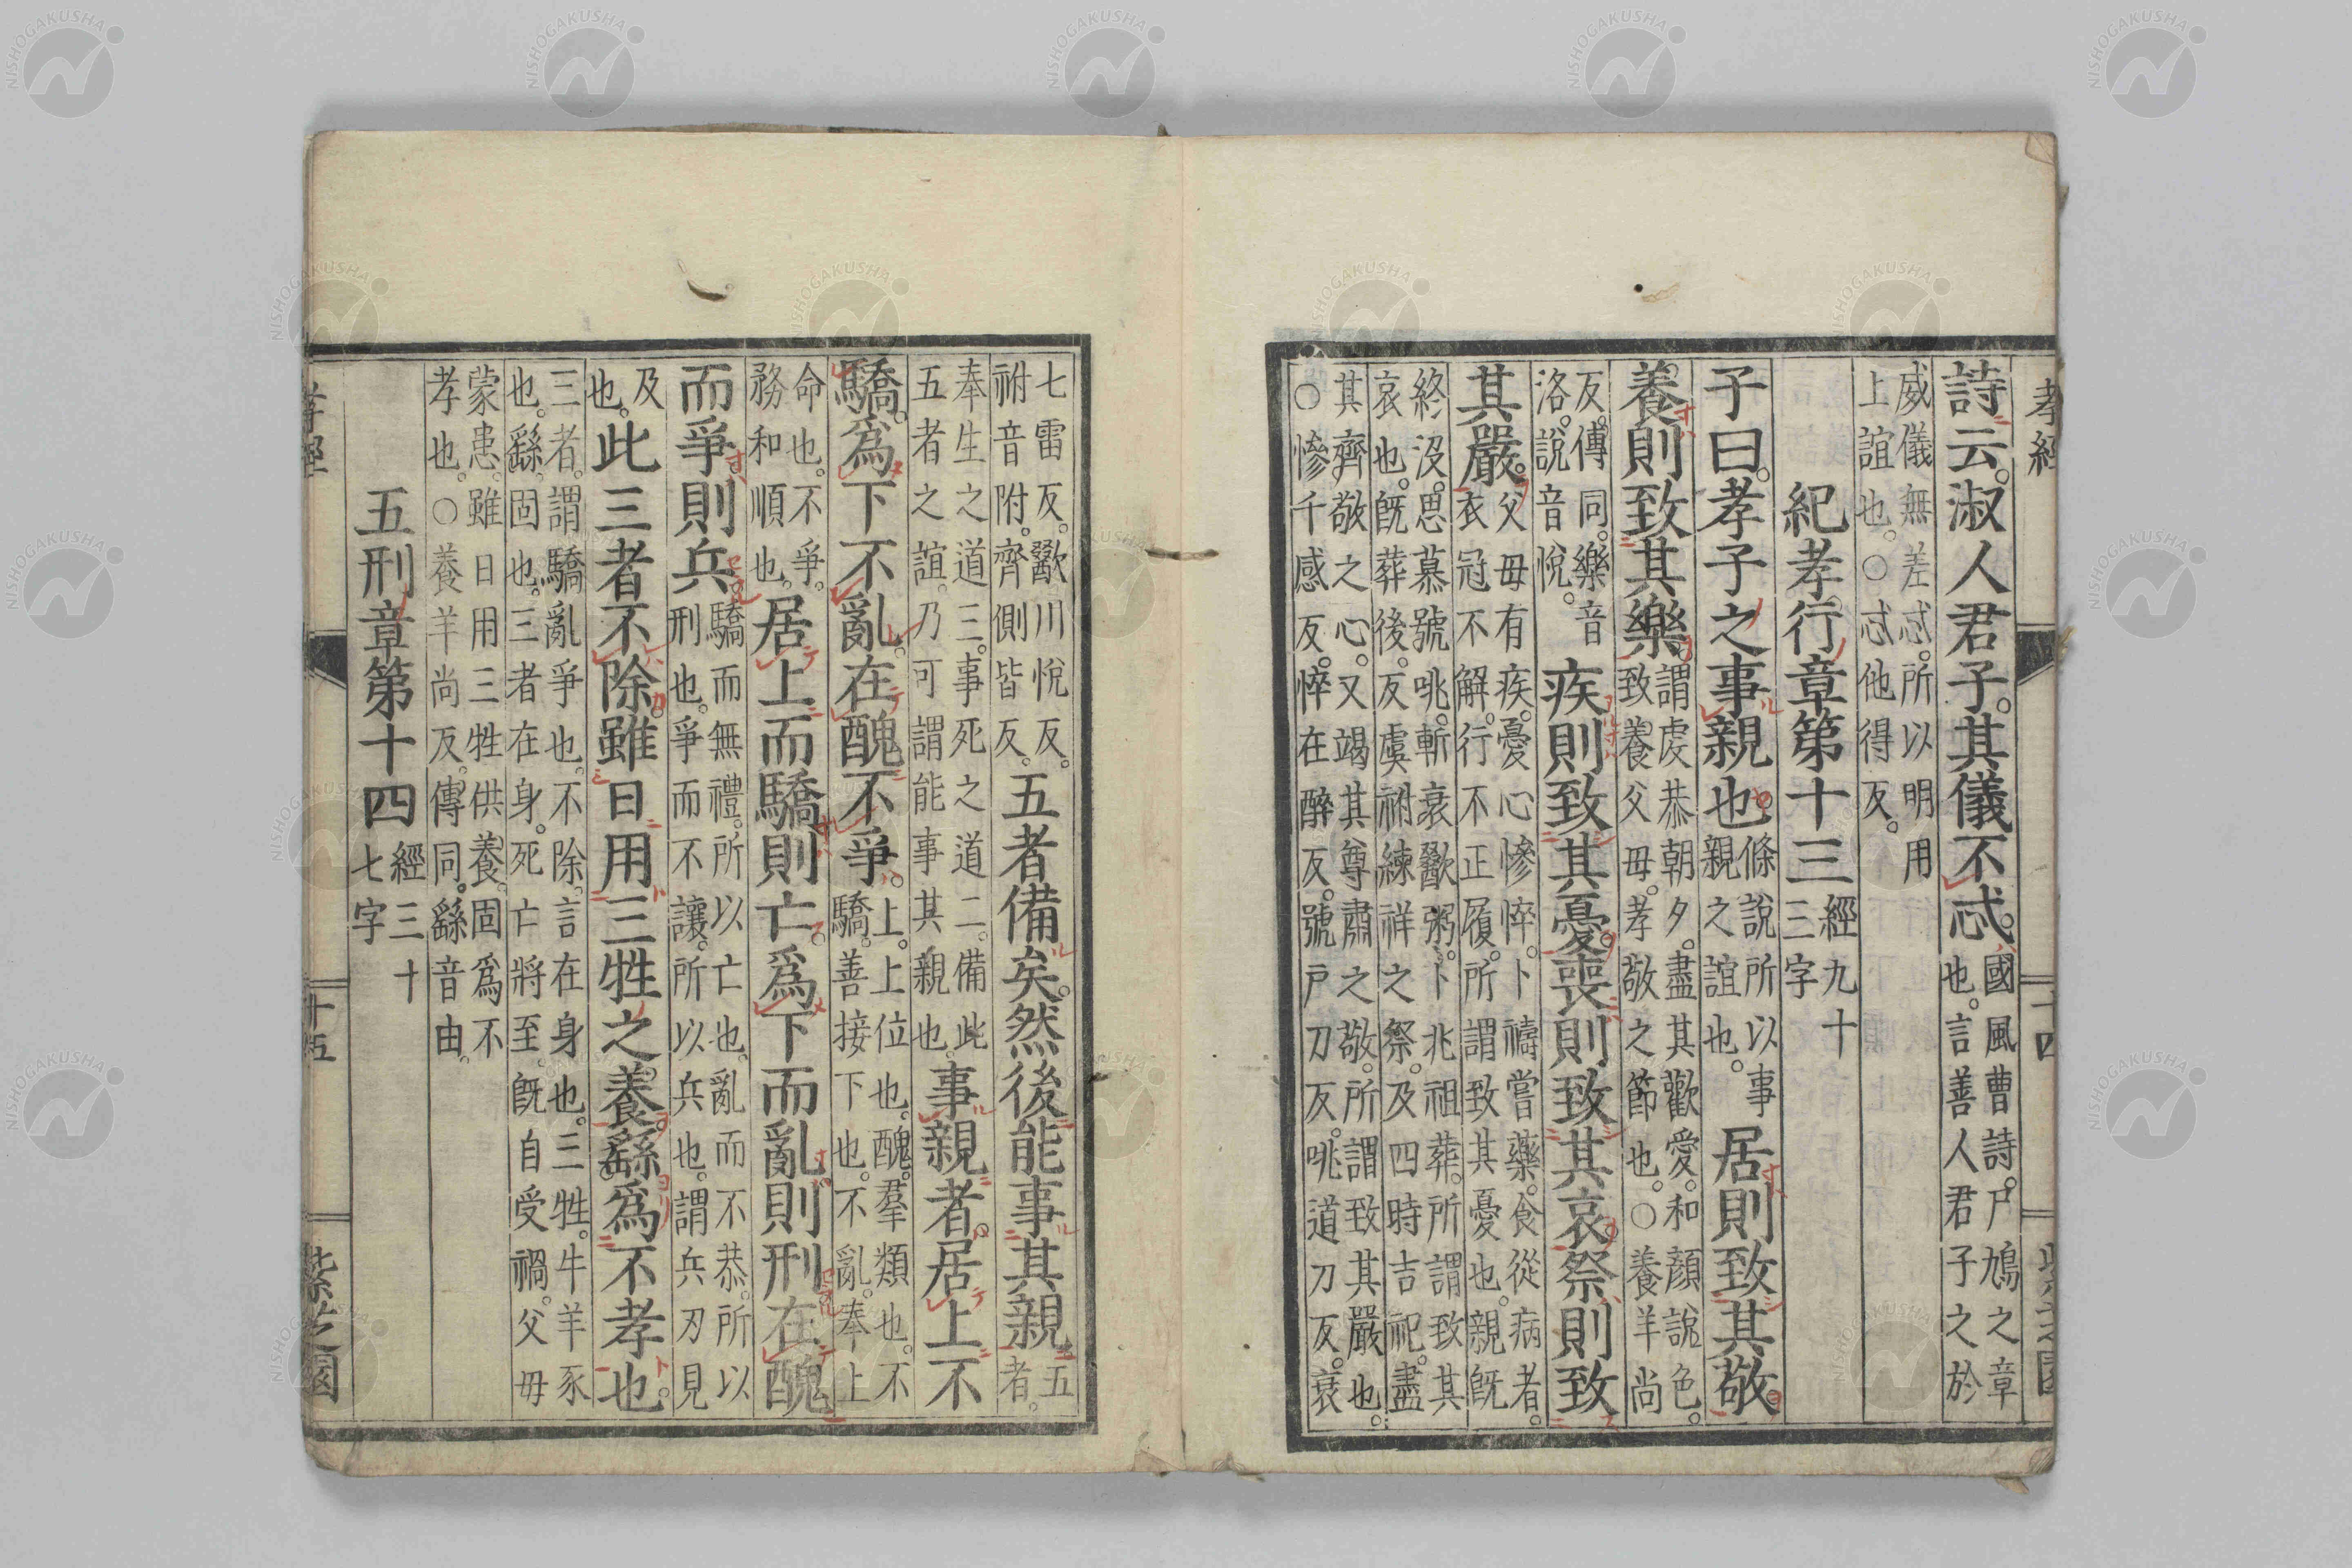 孝經
十四
詩云。淑人君子。其儀不忒。
國風曹詩。尸鳩之章
也。言善人君子之於
威儀無差忒。所以明用
上誼也。○忒他得反。
紀孝行章第十三
經九十
三字
子曰。孝子之事親也。
條說所以事
親之誼也。
居則致其敬。
養則致其樂。
謂虔恭朝夕。盡其歡愛。和顏說色。
致養父母。孝敬之節也。○養羊尚
反。傳同。樂音
洛。說音悅。
疾則致其憂。喪則致其哀。祭則致
其嚴。
父母有疾。憂心慘悴。卜禱嘗藥。食從病者。
衣冠不解。行不正履。所謂致其憂也。親旣
終沒。思慕號咷。斬衰歠粥。卜兆祖葬。所謂致其
哀也。旣葬後。反虞祔練祥之祭。及四時吉祀。盡
其齊敬之心。又竭其尊肅之敬。所謂致其嚴也。
○慘千感反。悴在醉反。號戶刀反。咷道刀反。衰
七雷反。歠川悅反。
祔音附。齊側皆反。
五者備矣。然後能事其親
五
者。
奉生之道三。事死之道二。備此
五者之誼。乃可謂能事其親也。
事親者。居上不
驕。爲下不亂。在醜不爭。
上。上位也。醜。羣類也。不
驕。善接下也。不亂。奉上
命也。不爭。
務和順也。
居上而驕則亡。爲下而亂則刑。在醜
而爭則兵。
驕而無禮。所以亡也。亂而不恭。所以
刑也。爭而不讓。所以兵也。謂兵刃見
及
也。
此三者不除。雖日用三牲之養。繇爲不孝也。
三者。謂驕亂爭也。不除。言在身也。三牲。牛羊豕
也。繇。固也。三者在身。死亡將至。旣自受禍。父母
蒙患。雖日用三牲供養。固爲不
孝也。○養羊尚反。傳同。繇音由。
五刑章第十四
經三十
七字
孝經
十五
紫芝園
NISHOGAKUSHA